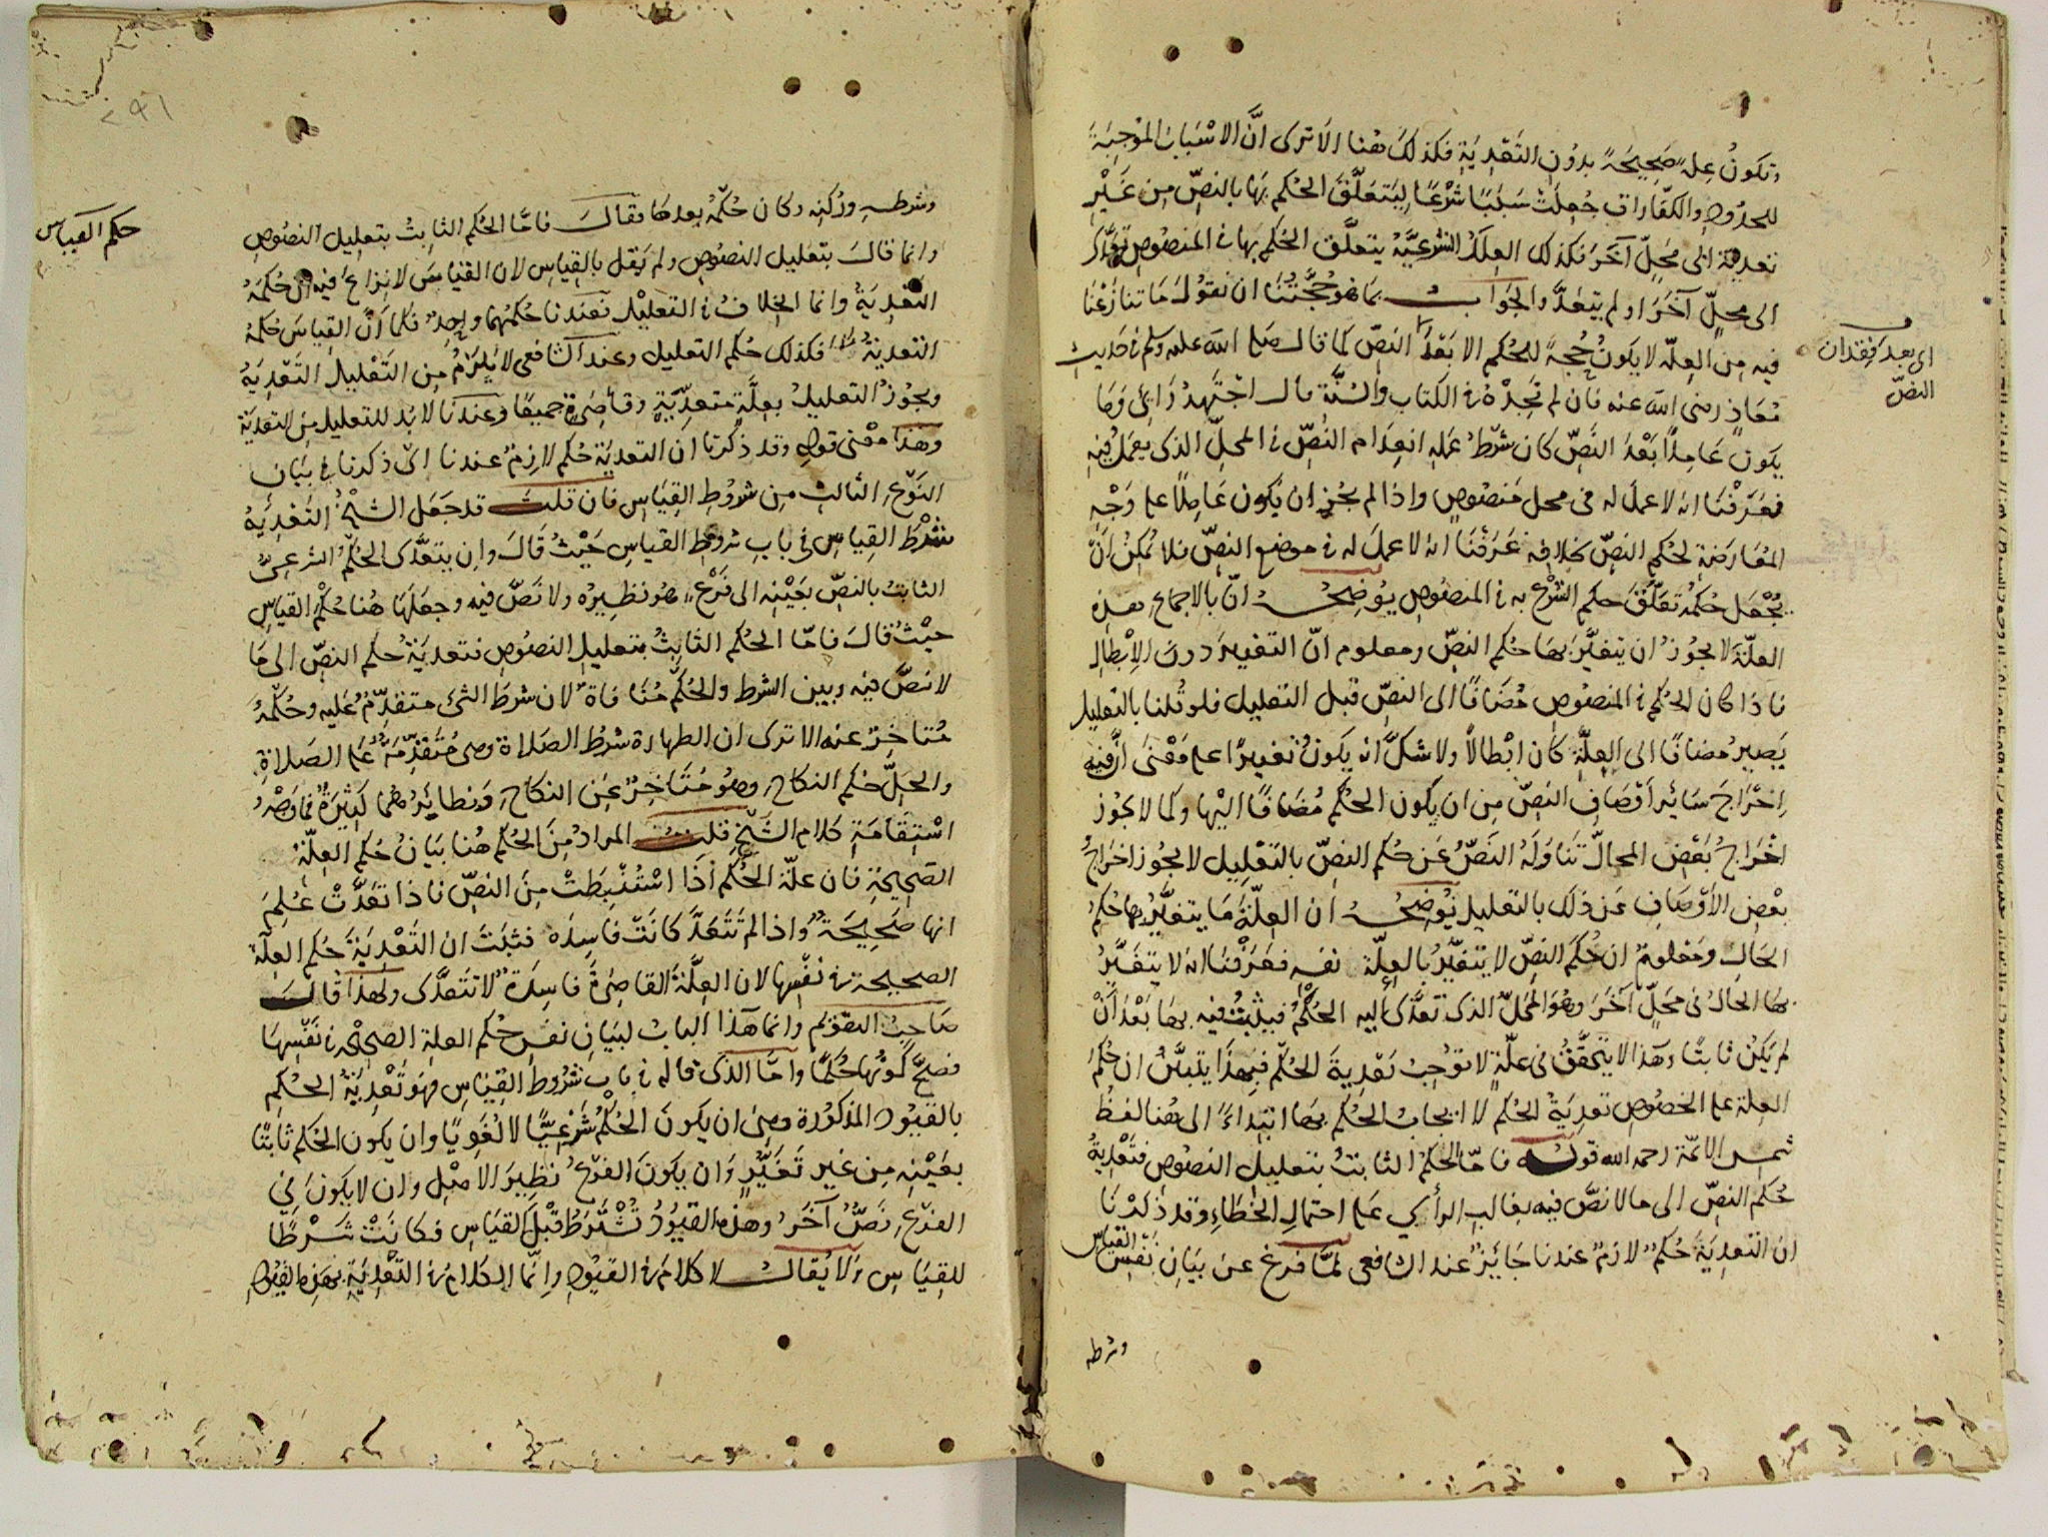 وتكونُ عِلةً صَحِيحَةً بدُونِ التَعْدِيَةِ فكذلكَ هُنا الاَ ترى انَّ الاسْبَابَ الموُجِبَةَ
للحدُودِ والكفّاراتِ جُعِلَتْ سَبَبًا شَرْعًا لِيَتعَلَّقَ الحُكم بِهَا بالنصِّ مِن غَيْرِ
تعدية الى مَحِلّ آخرَ فكذلك العِلَلُ الشرعِيَّةُ يتعلَّق الحُكم بها في المنصُوصِ تعدّى
الى محِلّ آخرَ او لم يتعَدَّ والجَوابُ بمَا هُو حُجَّتُنَا ان نقولَ مَا تنازَعْنا
فيه مِن العِلّة لا يكونُ حُجةً للحُكم الا بَعْدَ النصّ لِما قال صلى الله عليه وسلم في حَديث
مُعَاذٍ رضى الله عنه فان لم تجِدْهُ في الكتاب والسُنَّة قال اَجْتَهِدُ رَائى وَمَا
يكونُ عَامِلاً بَعْدَ النَصِّ كان شَرْطُ عَملِهِ انعِدَام النصِّ في المحِلِّ الذى يعمَلُ فِيهِ
فعَرَفْنَا انه لا عمل له فى محل مَنصُوصٍ واذا لم يجُز ان يكون عَامِلاً على وَجْهِ
المُعَارَضةِ لحُكم النصِّ بخلافِه عَرَفْنَا انه لا عملَ له في موضع النصِّ فلا يُمكِنُ اَنْ
يُجْعَل حُكمُهُ تعَلّقَ حكم الشَرْع به في المنصُوصِ يُوَضِّحُهُ انّ بالاجماع بهذه
العِلّة لا يجُوزُ ان يتغيَّرَ بهَا حُكم النصِّ ومعلوم انّ التغييرَ دونَ الاِبْطالِ
فاذا كان الحُكم في المنصُوص مُضَافًا الى النصِّ قبل التعليل فلو قُلنا بالتعليل
يَصِيرُ مضافًا الى العِلّةِ كان ابْطالاً ولا شكَّ انه يَكونُ تغييرًا على مَعْنَى اَنَّ فيه
اِخْرَاجَ سَائرِ اَوْصَافِ النصِّ مِن ان يكون الحُكم مُضَافًا اليْها وكما لا يجُوز
اخْرَاجُ بَعْضِ المحالّ تَنَاوَلَهُ النَصُّ عَن حُكم النصّ بالتَعْلِيل لا يجُوز اخرَاجُ
بعْضِ الاَوْصَافِ عَن ذلك بالتعليل يُوَضِّحُهُ ان العِلّةَ مَا يتغيَّرُ بها حُكمُ
الحَالِ ومَعْلومٌ ان حُكمَ النصِّ لا يتغيَّرُ بالعِلّة نفسه فعَرَفْنا انه لا يتغيَّرُ
بهَا الحَالُ فى مَحلٍّ آخَرَ وهُوَ المَحَلُّ الذى تعَدَّى اليه الحُكمُ فيثبُتُ فيه بهَا بَعْدَ اَنْ
لم يَكنْ ثابتًا وهَذا لا يتحَقَّقُ فى علّةٍ لا تُوجِبُ تَعْدِيةَ الحُكم فبِهَذا يتبيَّنُ ان حُكمَ
العِلة على الخصُوصِ تعدِيَةُ الحُكم لا ايجابُ الحُكم بهَا ابْتِدَاءً الى هُنا لفظُ
شمس الائمّة رحمه الله قولُه فامّا الحُكمُ الثابتُ بتعليلِ النصُوصِ فتَعْدِيَةُ
حُكم النصِّ الى مَا لا نصَّ فيه بغالبِ الرأي عَلى احتمالِ الخَطاءِ وقد ذكرْنَا
ان التعدِيَةَ حُكمٌ لازمٌ عندنا جَائِزٌ عند الشافعى لمَّا فرغ عن بَيَانِ نفْسِ القِيَاس
وشرطه
اى بعد فقدان
النصّ
وشرطِهِ ورُكنِه وكان حُكمُهُ بعدهَا فقالَ فامَّا الحُكم الثابتُ بتعليل النصُوصِ
وانما قالَ بتعليل النصُوصِ ولم يَقل بالقِياس لان القيَاسَ لا نزاعَ فيه اَن حُكمَهُ
التعْدِيَةُ وانما الخِلافُ في التعليْل فعندنا حُكمُهُمَا واحِدٌ فكما اَنَّ القِياسَ حُكمُهُ
التعديَةُ فكذلك حُكم التعليل وعند الشافعى لا يَلزَمُ مِن التَعْليلِ التَعْدِيَةُ
ويجُوزُ التعليلُ بعِلَّةٍ متعدِّيَةٍ وقاصِرَةٍ جميعًا وعندنا لا بُدّ للتعليل مِن التعديَةِ
وهَذا مَعْنى قولهِ وقد ذكرنا ان التعديَةَ حُكم لازِمٌ عندنا اى ذكرنا في بيَان
النَوْعِ الثالثِ مِن شرُوُطِ القِيَاسِ فان قلتَ قد جَعَل الشَيْخُ التَعْدِيَةَ
شَرْطَ القِيَاسِ فى بابِ شُرُوُطِ القياسِ حَيْثُ قَالَ وان يتعدَّى الحُكم الشرعِىُّ
الثابتُ بالنصِّ بعَيْنِه الى فَرْعٍ هُو نظِيرُه ولا نَصَّ فيه وجعلهَا هُنا حُكمُ القِيَاسِ
حيْثُ قالَ فامّا الحُكم الثابِتُ بتعليلِ النصُوصِ فتعدِيَةُ حُكم النصِّ الى مَا
لا نصَّ فيه وبين الشرط والحُكم مُنَافاة لان شرطَ الشئ متقدِّمٌ عَليه وحُكمُهُ
مُتاخِرٌ عنه الا ترى ان الطهارة شرْطُ الصَلاة وهى مُتقدِّمَةٌ عَلى الصَلاةِ
والحِلَّ حُكم النكاح وهُو مُتَاخِرٌ عَن النكاحِ وَنظائرُهما كَثِيرَةٌ فمَا وَجْهُ
اسْتِقَامَةِ كلام الشَيْخِ قلتُ المرادُ مِنَ الحُكم هُنا بَيَانُ حُكم العِلّةِ
الصَحِيحَةِ فان علّة الحُكم اذَا اسْتُنْبِطَتْ مِنَ النصِّ فاذا تعَدَّتْ عُلِمَ
انها صَحِيحَةٌ واذا لم تتعَدَّ كانَتْ فاسِدَه فثبَتَ ان التَعْدِيَةَ حُكم العِلّة
الصحيحة في نفْسِها لان العِلّةَ القاصِرَةَ فاسِدَةٌ لا تتعَدَّى ولهذا قالَ
صَاحِبُ التقويْم وانما هَذا البابُ لبيَانِ نفس حُكم العلة الصحيْحَة في نَفْسِهَا
فصحَّ كوْنُها حُكمًا وامَّا الذى قاله في بابِ شُرُوُط القِيَاسِ فهُو تَعْدِيَةُ الحُكم
بالقيُودِ المذكُورَة وهى ان يكونَ الحُكمُ شرْعِيًّا لا لُغَوِيًّا وان يكون الحُكم ثابتًا
بعَيْنِه مِن غير تَغَيُّرٍ وَان يكونَ الفرْعُ نظِيرَ الاصْلِ وان لا يكونَ في
الفرْعِ نَصٌّ آخَرُ وهذه القيُودُ تُشْتَرَطُ قبْلَ القيَاسِ فكانَتْ شَرْطًا
للقِيَاسِ ولا يُقالُ لا كلامَ في القيُودِ وإنّما الكلامُ في التَعْدِيَةِ بهَذه القيُودِ
حكم القياس